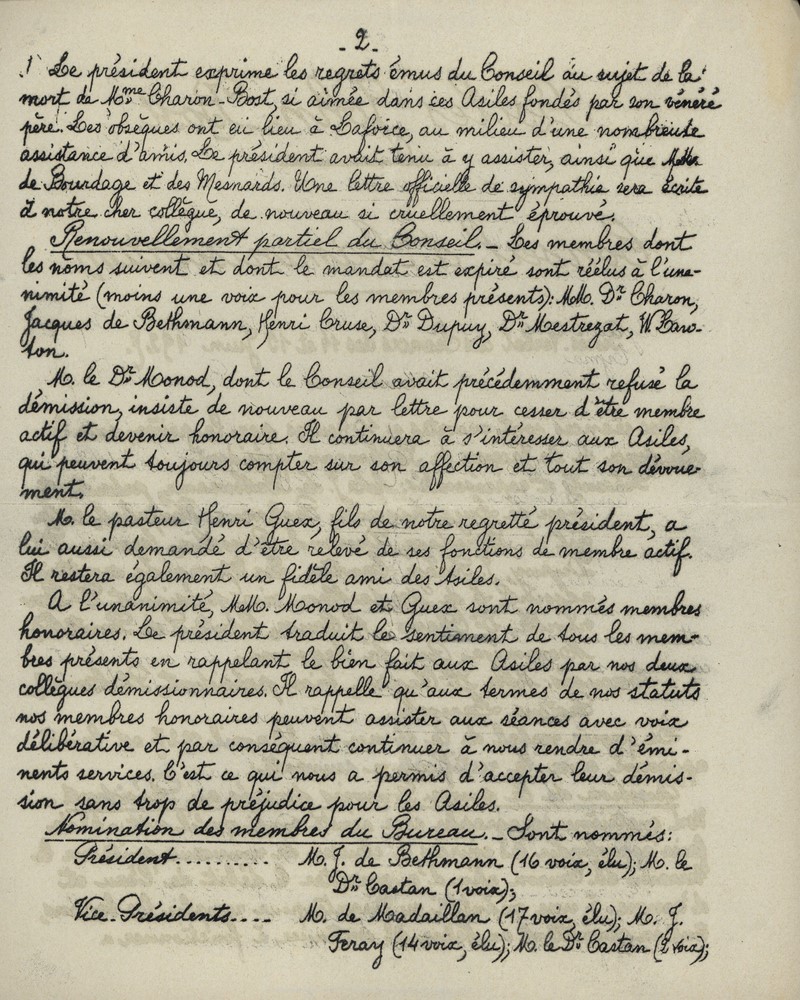 - 2 -
Le président exprime les regrets émus du Conseil au sujet de la
mort de Mme Charon-Bost, si aimée dans ces Asiles fondés par son vénéré
père. Les obsèques ont eu lieu à Laforce, au milieu d'une nombreuse
assistance d'amis. Le président avait tenu à y assister, ainsi que MM.
de Bourdage et des Mesnards. Une lettre officielle de sympathie sera écrite
à notre cher collègue, de nouveau si cruellement éprouvé.
Renouvellement partiel du Conseil. - Les membres dont
les noms suivent et dont le mandat est expiré sont réélus à l'una-
nimité (moins une voix pour les membres présents): MM. Dr Charon,
Jacques de Bethmann, Henri Cruse, Dr Dupuy, Dr Mestrezat, W Law-
ton.
M. le Dr Monod, dont le Conseil avait précédemment refusé la
démission, insiste de nouveau par lettre pour cesser d'être membre
actif et devenir honoraire. Il continuera à s'intéresser aux Asiles,
qui peuvent toujours compter sur son affection et tout son dévoue-
ment.
M. le pasteur Henri Guex, fils de notre regretté président, a
lui aussi demandé d'être relevé de ses fonctions de membre actif.
Il restera également un fidèle ami des Asiles.
A l'unanimité, MM. Monod et Guex sont nommés membres
honoraires. Le président traduit le sentiment de tous les mem-
bres présents en rappelant le bien fait aux Asiles par nos deux
collègues démissionnaires. Il rappelle qu'aux termes de nos statuts
nos membres honoraires peuvent assister aux séances avec voix
délibérative et par conséquent continuer à nous rendre d'émi-
nents services. C'est ce qui nous a permis d'accepter leur démis-
sion sans trop de préjudice pour les Asiles.
Nomination des membres du Bureau. - Sont nommés:
Président.......... M. J. de Bethmann (16 voix, élu); M. le
Dr Castan (1 voix);
Vice-Présidents.... M. de Madaillan (17 voix, élu); M. J.
Feray (14 voix, élu); M. le Dr Castan (2 voix);